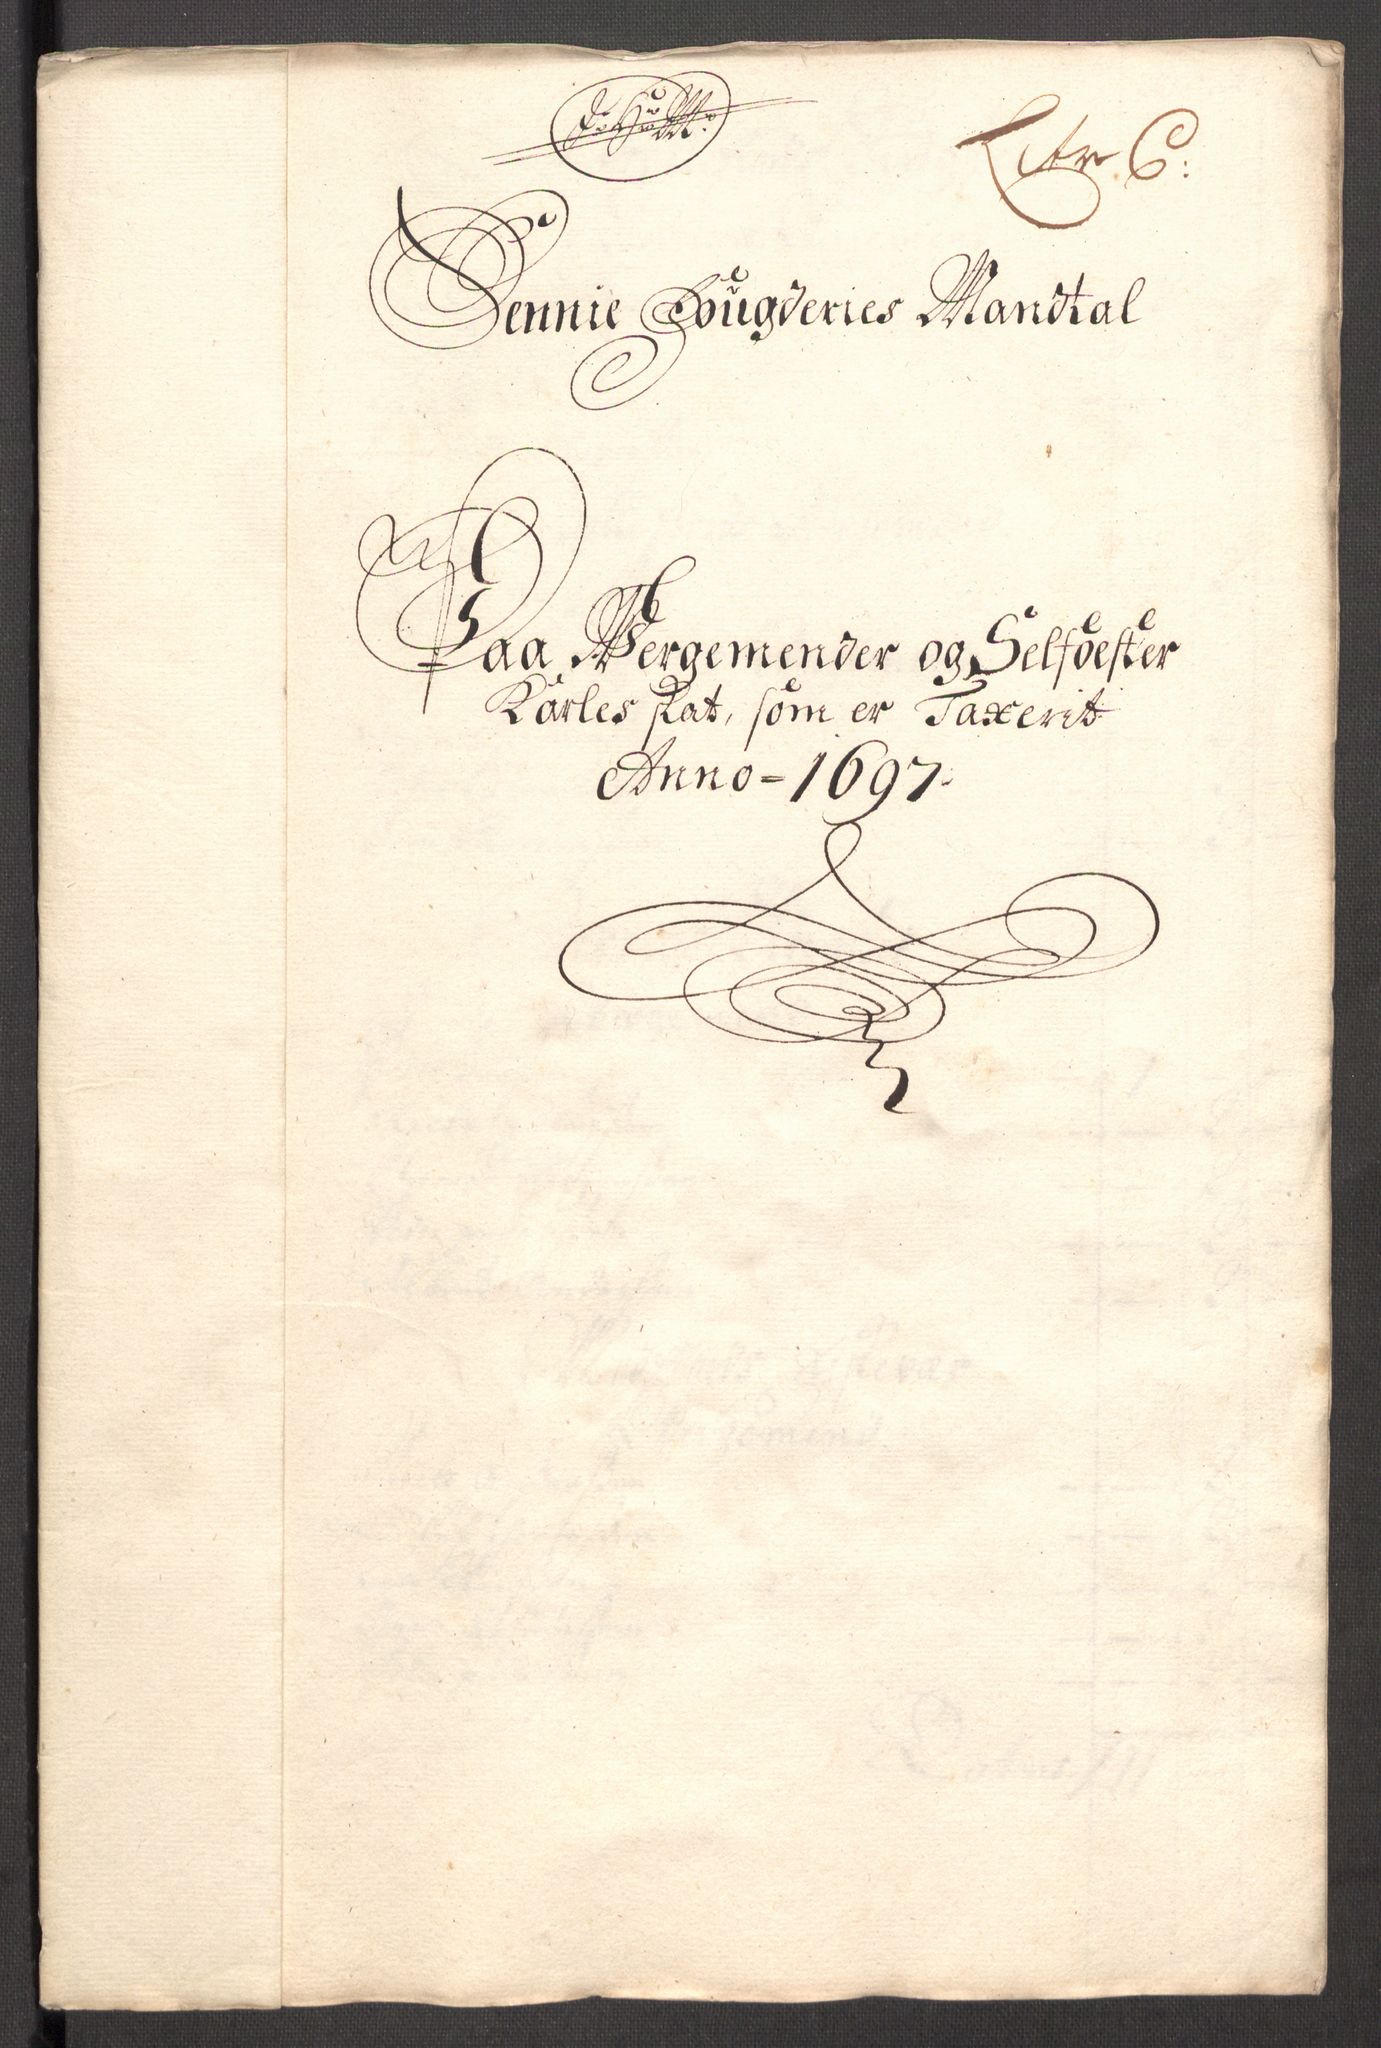 Litr C:
Sennie Fougderies Mandtal
Paa Bergemender og Selfoester
Karles skat, som er Taxerit
Anno - 1697.